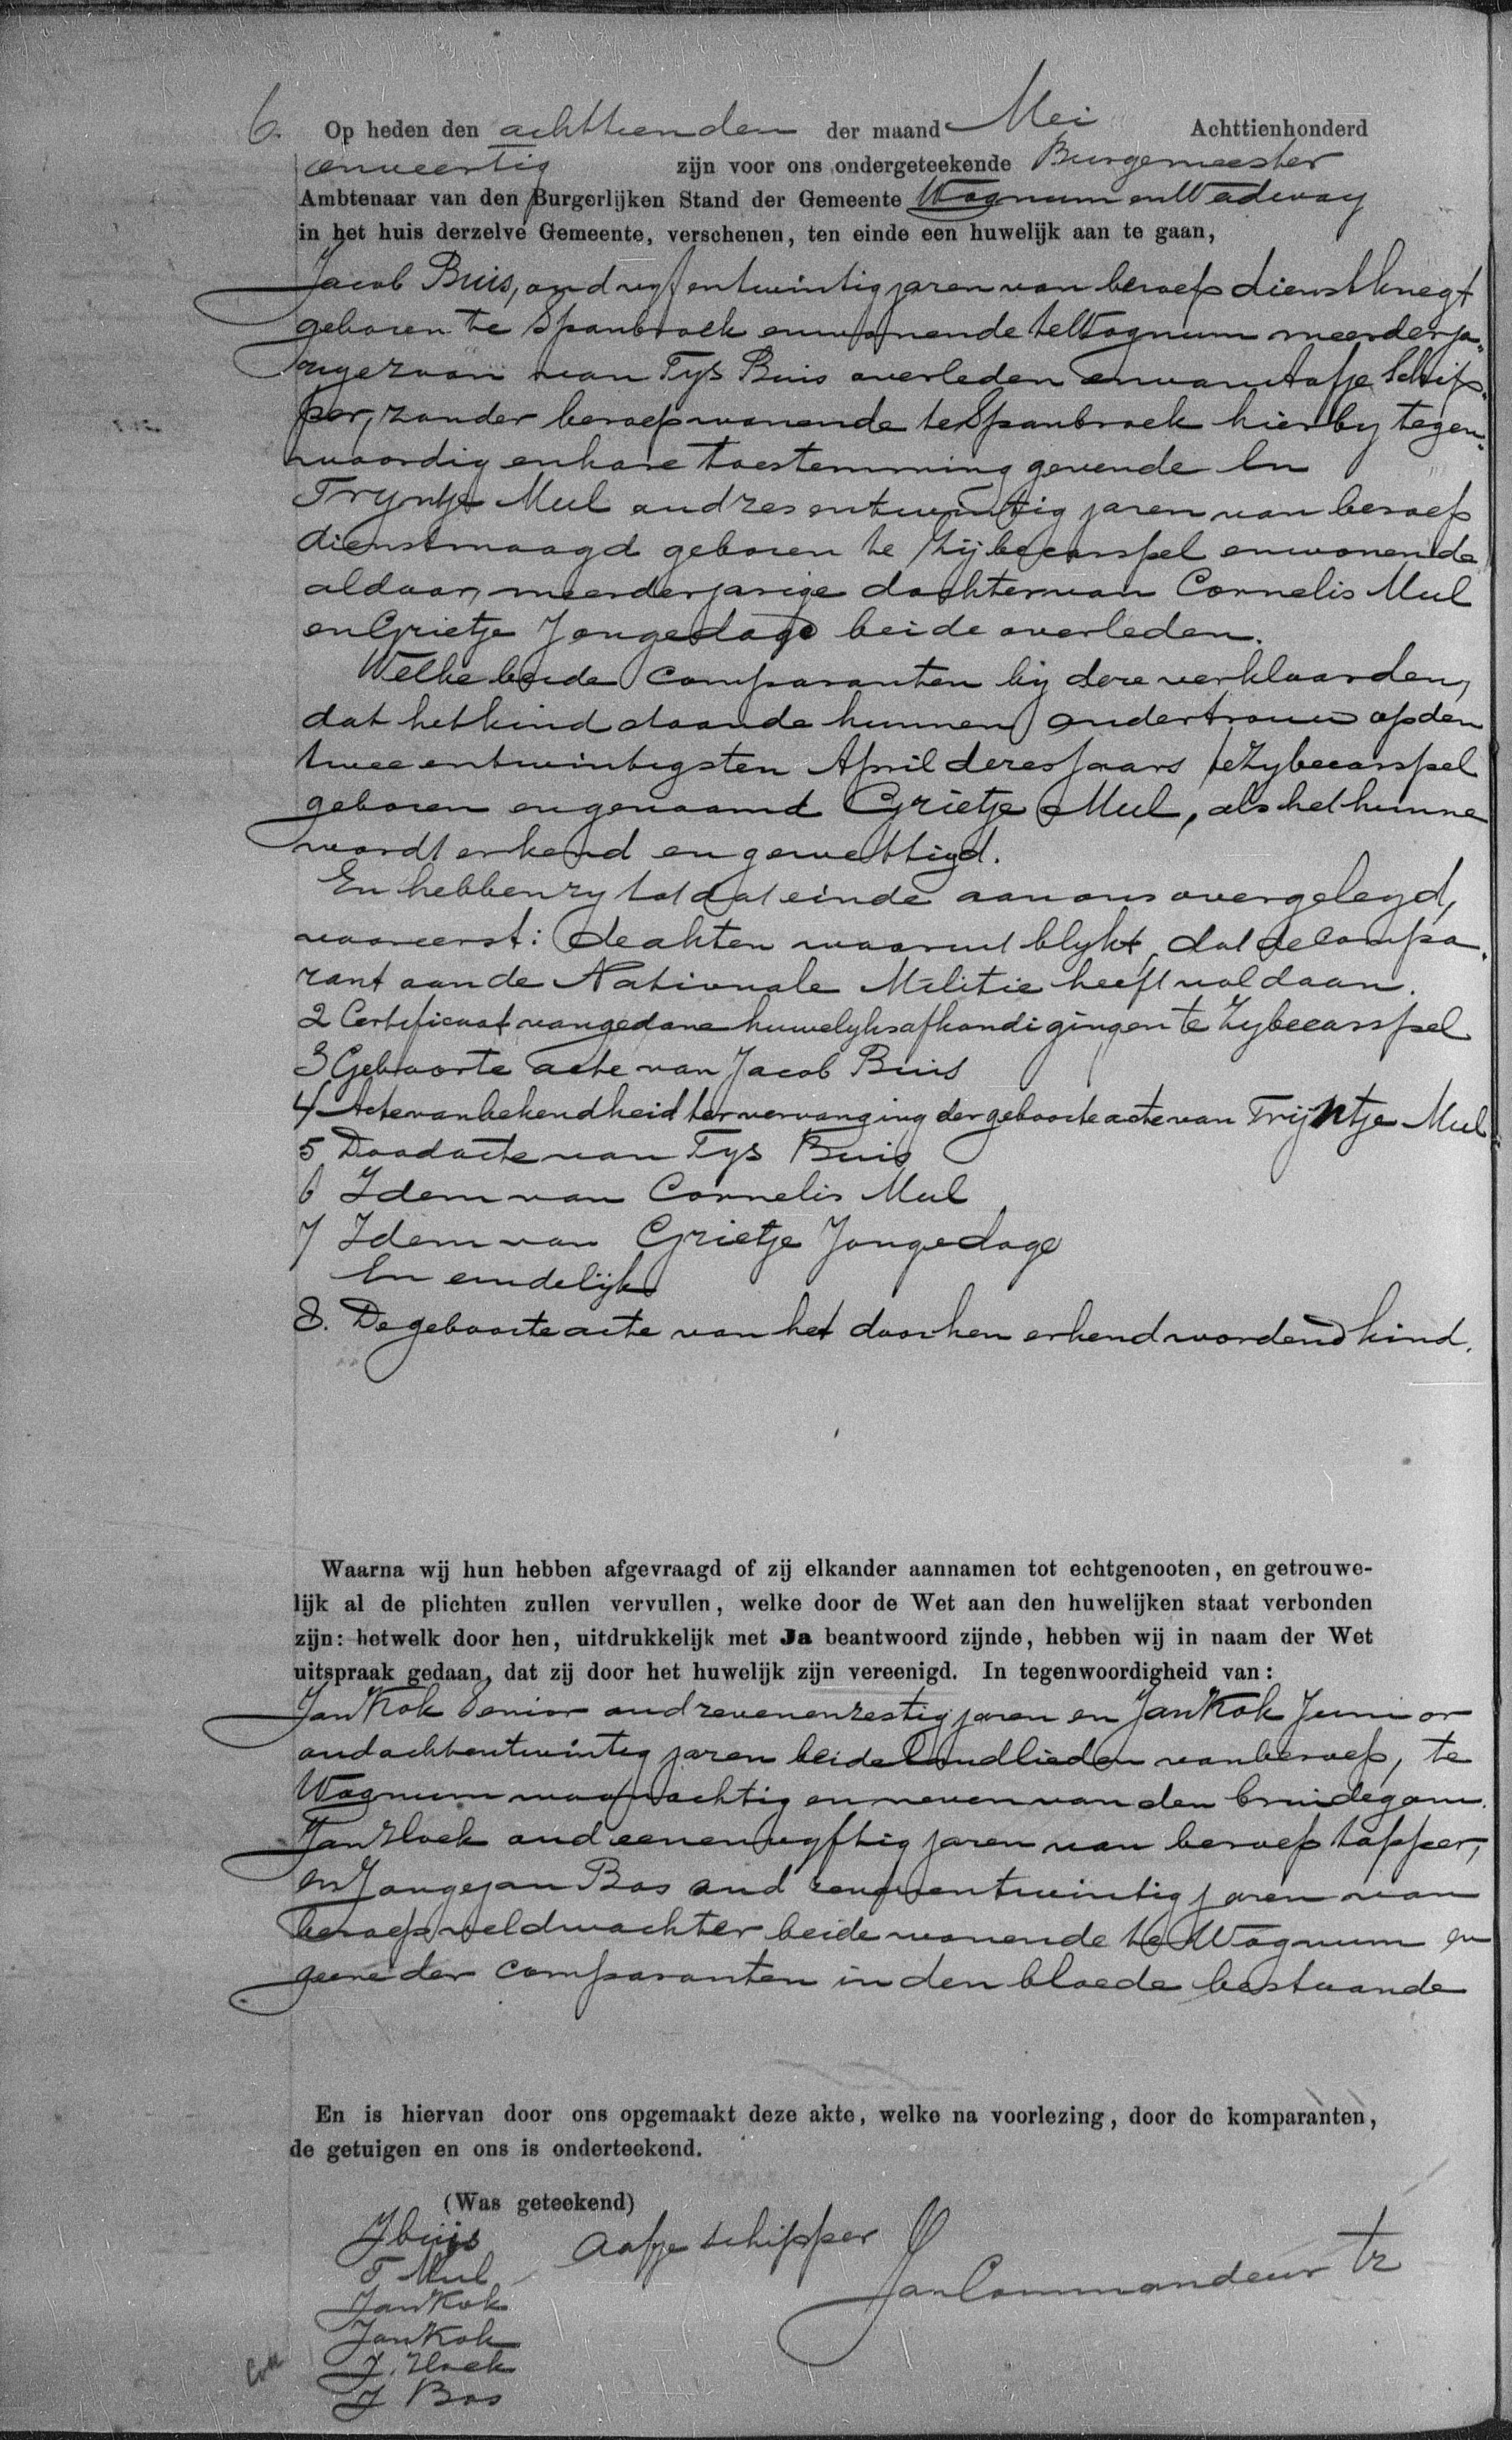 6. Op heden den achttienden der maand Mei Achttienhonderd
eenveertig zijn voor ons ondergeteekende Burgemeester
Ambtenaar van den Burgerlijken Stand der Gemeente Wognum en Wadway
in het huis derzelve Gemeente, verschenen, ten einde een huwelijk aan te gaan,
Jacob Buis, oud vyf entwintig jaren van beroep dienstknegt
geboren te Spanbroek en wonende te Wognum meerderja-
rige zoon van Tys Buis overleden en van Aafje Schip-
per, zonder beroep wonende te Spanbroek hierby tegen-
woordig en hare toestemming gevende En
Tryntje Mul oud zes entwintig jaren van beroep
dienstmaagd geboren te Zijbecarspel en wonende
aldaar, meerderjarige dochter van Cornelis Mul
en Grietje Jongedage beide overleden.
Welke beide comparanten bij deze verklaarden,
dat het kind staande hunnen ondertrouw op den
twee entwintigsten April dezes jaars te Zybecarspel
geboren en genaamd Grietje Mul, als het hunne
wordt erkend en gewettigd.
En hebben zy tot dat einde aan ons overgelegd,
vooreerst: de akten waaruit blykt, dat de compa-
rant aan de Nationale Militie heeft voldaan.
2 Certificaat van gedane huwelyksafkondigingen te Zybecarspel
3 Geboorte acte van Jacob Buis
4 Acte van bekendheid ter vervanging der geboorte acte van Trijntje Mul
5 Doodacte van Tys Buis
6 Idem van Cornelis Mul
7 Idem van Grietje Jongedage
En eindelijk
8. De geboorte acte van het door hen erkend wordend kind.
Waarna wij hun hebben afgevraagd of zij elkander aannamen tot echtgenooten, en getrouwe-
lijk al de plichten zullen vervullen, welke door de Wet aan den huwelijken staat verbonden
zijn: hetwelk door hen, uitdrukkelijk met Ja beantwoord zijnde, hebben wij in naam der Wet
uitspraak gedaan, dat zij door het huwelijk zijn vereenigd. In tegenwoordigheid van:
Jan Kok Senior oud zevenenzestig jaren en Jan Kok Junior
oud achtentwintig jaren beide landlieden van beroep, te
Wognum woonachtig en neven van den bruidegom.
Jan Hoek oud eenenvyftig jaren van beroep tapper,
en Jongejan Bas oud zevenentwintig jaren van
beroep veldwachter beide wonende te Wognum en
geene der comparanten in den bloede bestaande
En is hiervan door ons opgemaakt deze akte, welke na voorlezing, door de komparanten,
de getuigen en ons is onderteekend.
(Was geteekend)
J buijs Aafje schipper
T Mul Jan Commandeur Tz
Jan Kok
Jan Kok
J. Hoek
J Bas